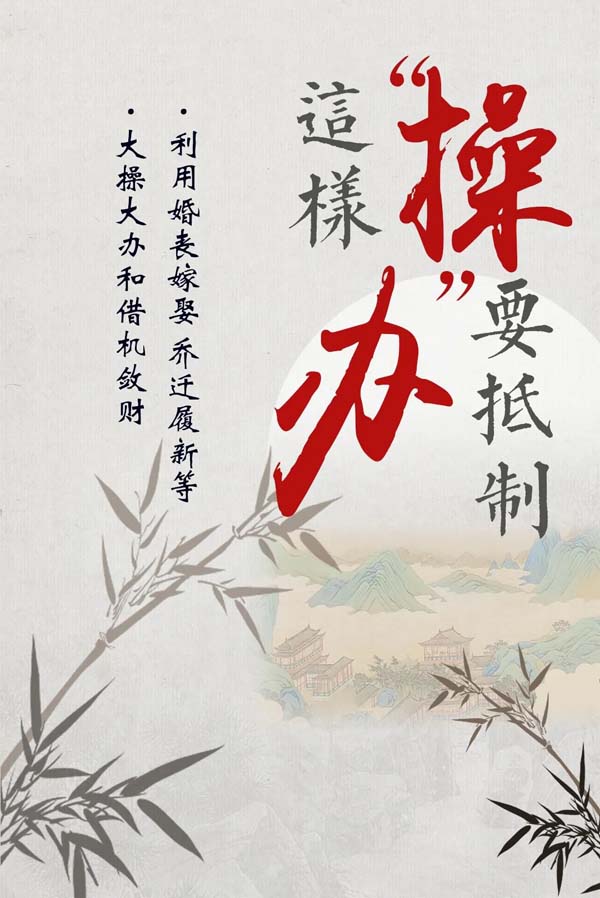 這樣
“操办”
要抵制
·利用婚丧嫁娶乔迁履新等
·大操大办和借机敛财